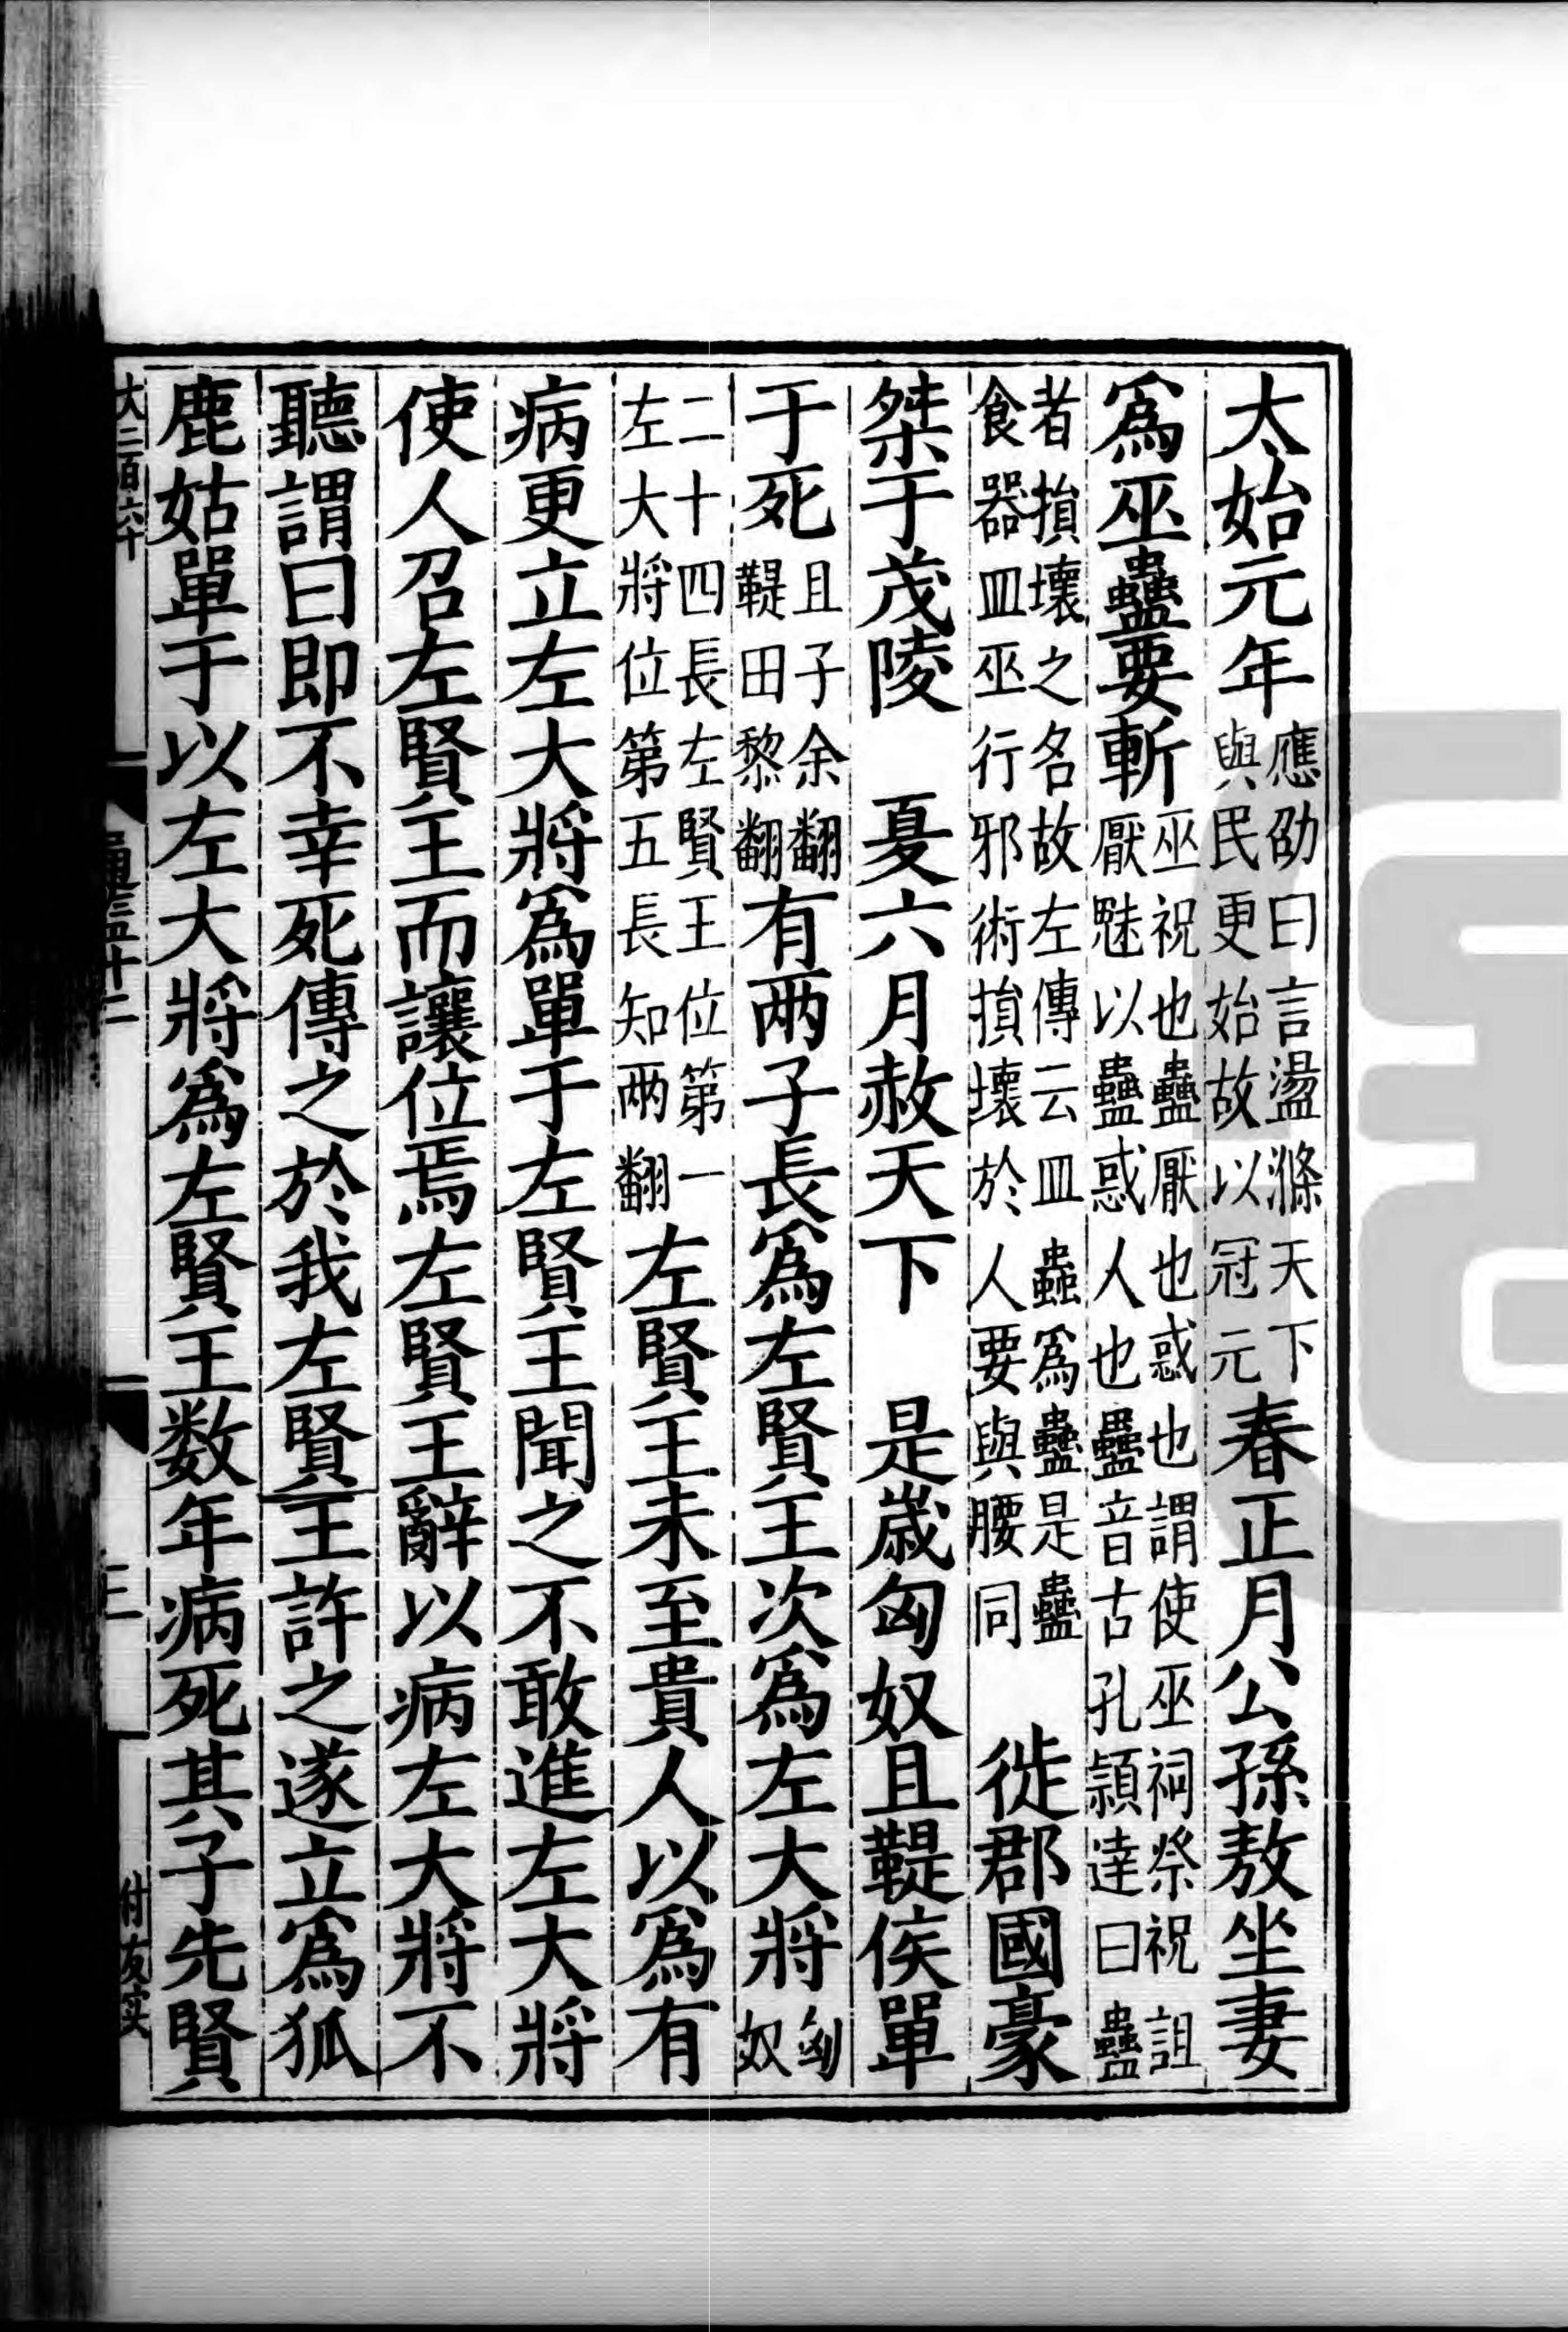 太始元年應劭曰言盪滌天下與民更始故以冠元春正月公孫敖坐妻
爲巫蠱要斬巫祝也蠱厭也惑也謂使巫祠祭祝詛厭魅以蠱惑人也蠱音古孔頴達曰蠱
者損壞之名故左傳云皿蟲爲蠱是蠱食器皿巫行邪術損壞於人要與腰同 徙郡國豪
桀于茂陵 夏六月赦天下 是歲匈奴且鞮侯單
于死且子余翻鞮田黎翻有兩子長爲左賢王次爲左大將匈奴
二十四長左賢王位第一左大將位第五長知兩翻左賢王未至貴人以爲有
病更立左大將爲單于左賢王聞之不敢進左大將
使人召左賢王而讓位焉左賢王辭以病左大將不
聽謂曰即不幸死傳之於我左賢王許之遂立爲狐
鹿姑單于以左大將爲左賢王数年病死其子先賢
大三百六十
通三五十二
三
付友实